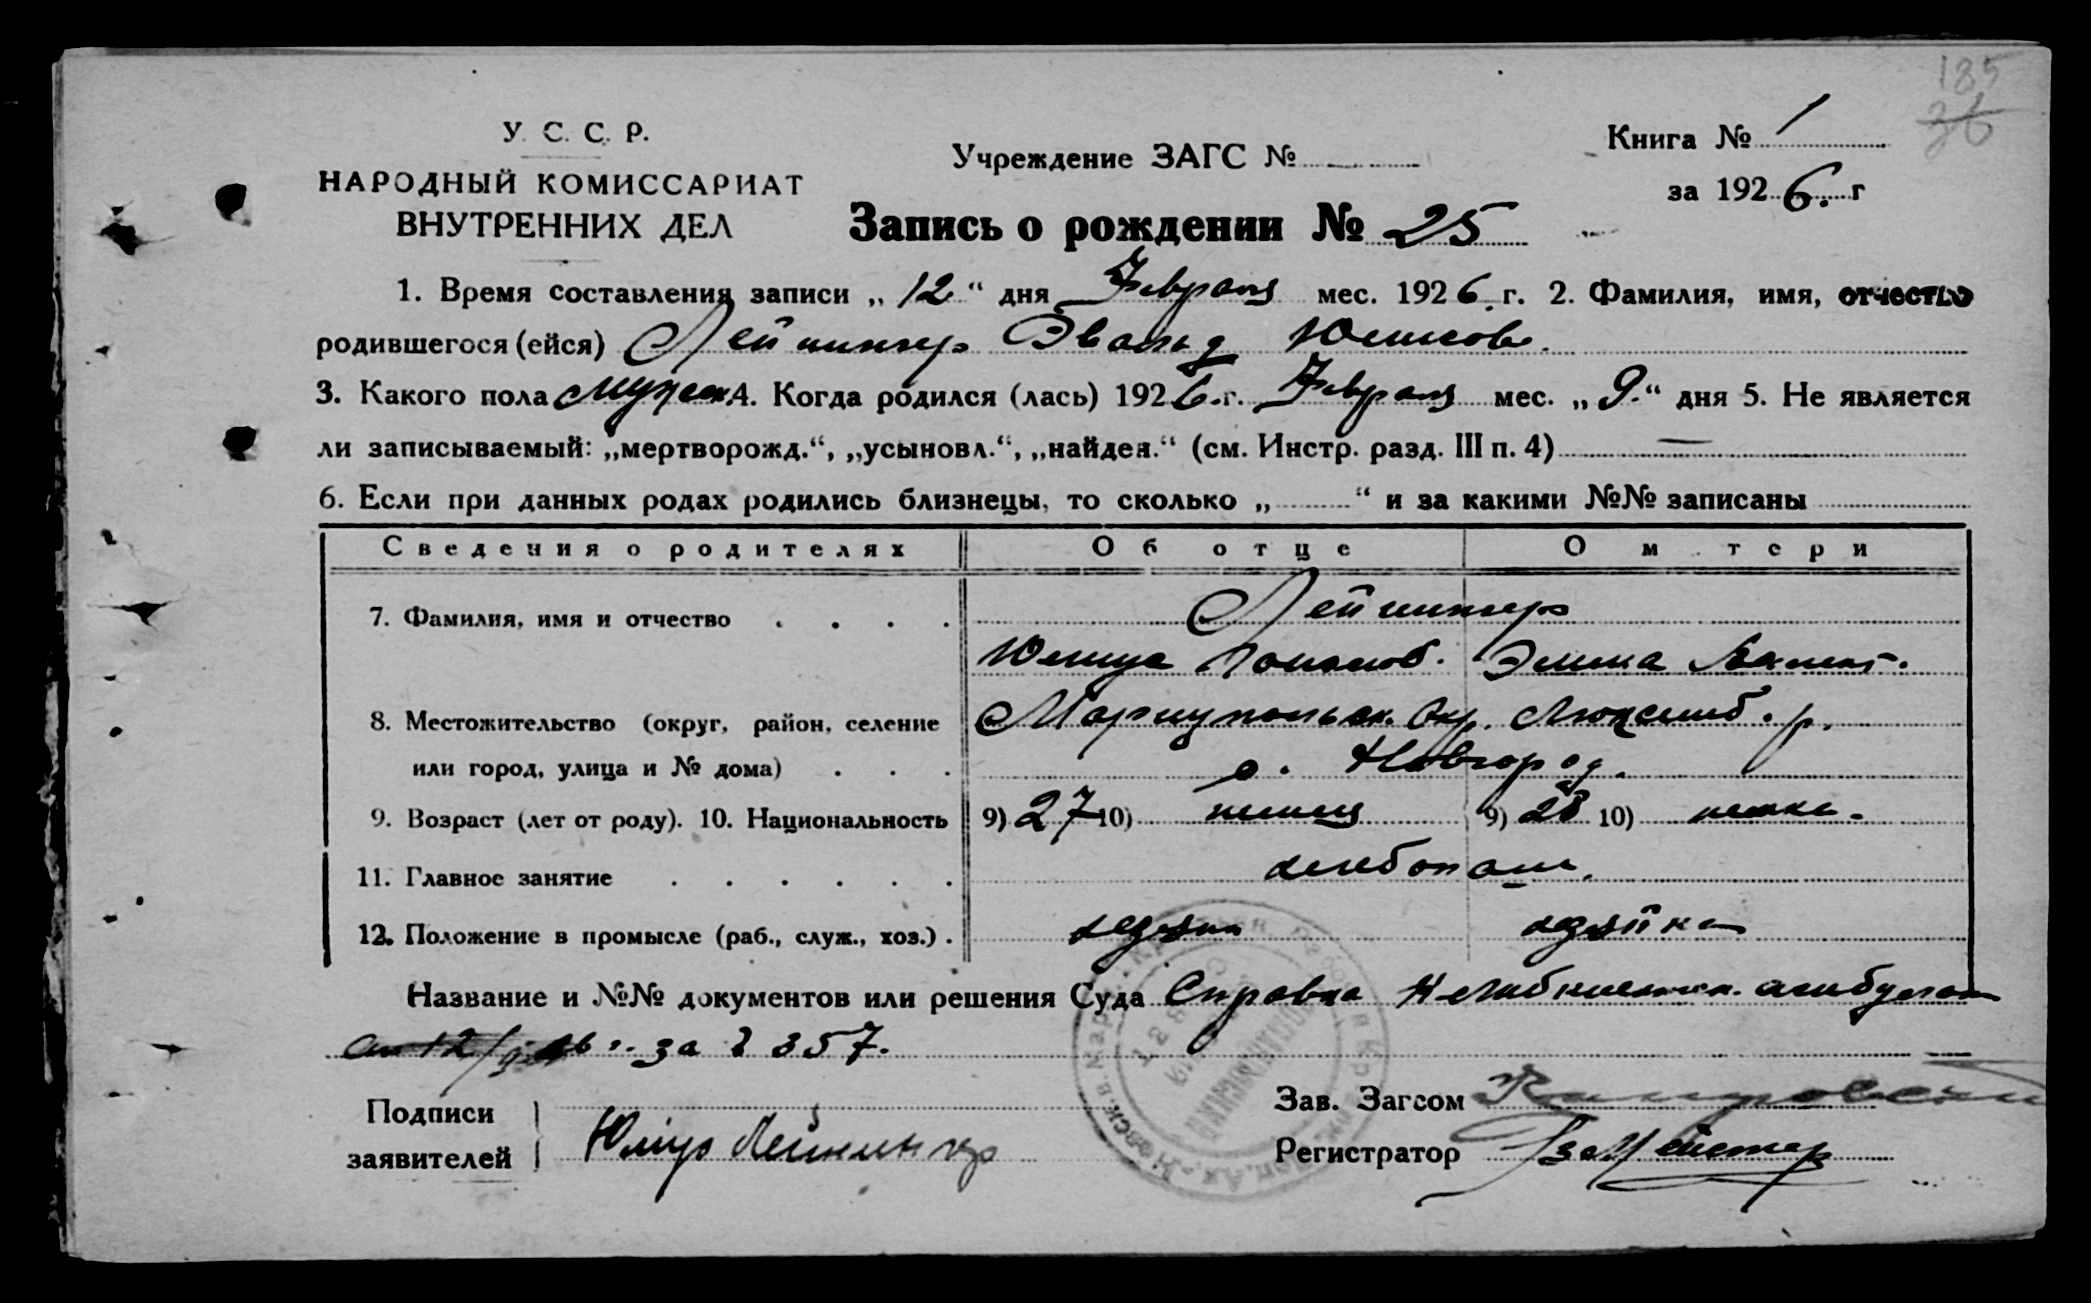 185
36
У. С. С. Р.
НАРОДНЫЙ КОМИССАРИАТ
ВНУТРЕННИХ ДЕЛ
Учреждение ЗАГС №
Книга № 1
за 1926. г
Запись о рождении № 25
1. Время составления записи „12“ дня Февраля мес. 1926 г. 2. Фамилия, имя, отчество
родившегося (ейся) Лейнингер Эвальд Юлиусов.
3. Какого пола мужск 4. Когда родился (лась) 1926. г. Февраля мес. „9.“ дня 5. Не является
ли записываемый: „мертворожд.“, „усыновл.“, „найден.“ (см. Инстр. разд. III п. 4) —
6. Если при данных родах родились близнецы, то сколько „ “ и за какими №№ записаны
Сведения о родителях Об отце О м тери
7. Фамилия, имя и отчество Лейнингер
Юлиус Эмма
8. Местожительство (округ, район, селение Мариупольск. Окр. Люксемб. р.
или город, улица и № дома) с. Новгород.
9. Возраст (лет от роду). 10. Национальность 9) 27 10) немец 9) 28 10) немка.
11. Главное занятие хлебопаш.
12. Положение в промысле (раб., служ., хоз.) хозяин хозяйка
Название и №№ документов или решения Суда Справка
за № 357.
Подписи
заявителей Юлиус Лейнингер
Зав. Загсом
Регистратор